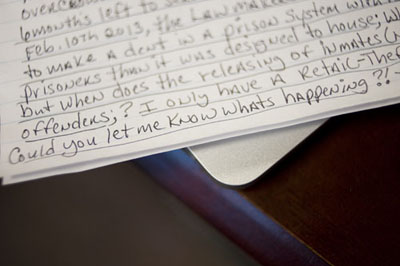 overcrow
6months left to se
Feb. 10th 2013, the lawmake
to make a dent in a prison system with
prisoners than it was designed to house; W
but when does the releasing of inmates (N
offenders;? I only have a Retaic-Thef
Could you let me know whats happening?!